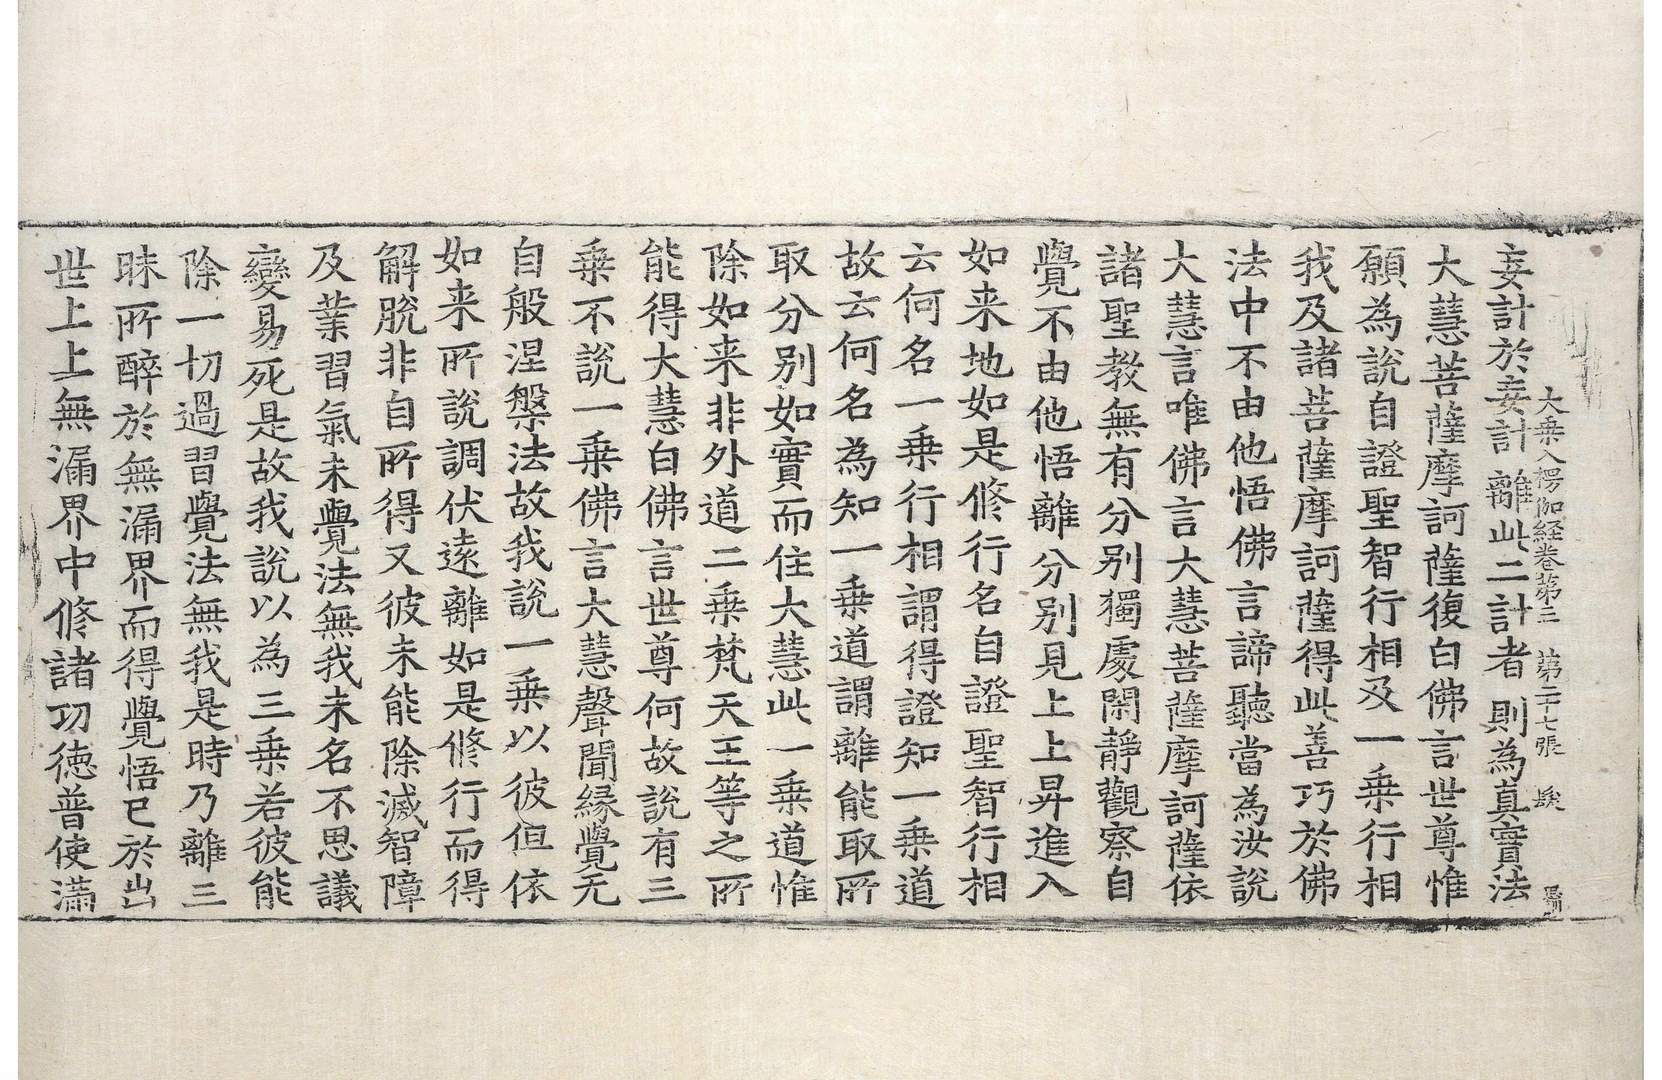 大乗入楞伽経卷第三　第二十七張　髮
妄計於妄計　離此二計者　則為真實法
大慧菩薩摩訶薩復白佛言世尊惟
願為說自證聖智行相及一乗行相
我及諸菩薩摩訶薩得此善巧於佛
法中不由他悟佛言諦聽當為汝說
大慧言唯佛言大慧菩薩摩訶薩依
諸聖教無有分別獨處閑靜觀察自
覺不由他悟離分別見上上昇進入
如来地如是修行名自證聖智行相
云何名一乗行相謂得證知一乗道
故云何名為知一乗道謂離能取所
取分別如實而住大慧此一乗道惟
除如来非外道二乗梵天王等之所
能得大慧白佛言世尊何故說有三
乗不說一乗佛言大慧聲聞縁覺无
自般涅槃法故我說一乗以彼但依
如来所說調伏遠離如是修行而得
解脫非自所得又彼未能除滅智障
及業習氣未覺法無我未名不思議
變易死是故我說以為三乗若彼能
除一切過習覺法無我是時乃離三
昧所醉於無漏界而得覺悟已於出
世上上無漏界中修諸功徳普使滿